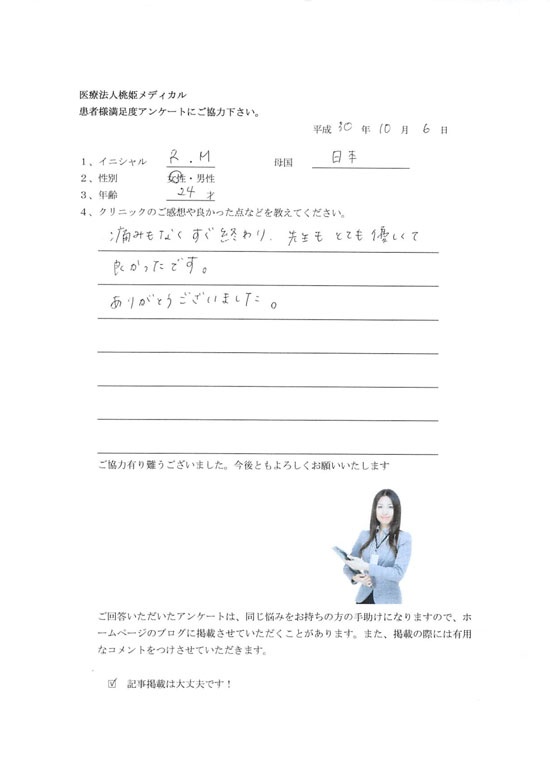 医療法人桃姫メディカル
患者様満足度アンケートにご協力下さい。
平成 30 年 10 月 6 日
1、イニシャル R.M 母国 日本
2、性別 女性・男性
3、年齢 24 才
4、クリニックのご感想や良かった点などを教えてください。
痛みもなくすぐ終わり、先生もとても優しくて
良かったです。
ありがとうございました。
ご協力有り難うございました。今後ともよろしくお願いいたします
ご回答いただいたアンケートは、同じ悩みをお持ちの方の手助けになりますので、ホ
ームページのブログに掲載させていただくことがあります。また、掲載の際には有用
なコメントをつけさせていただきます。
☑ 記事掲載は大丈夫です！